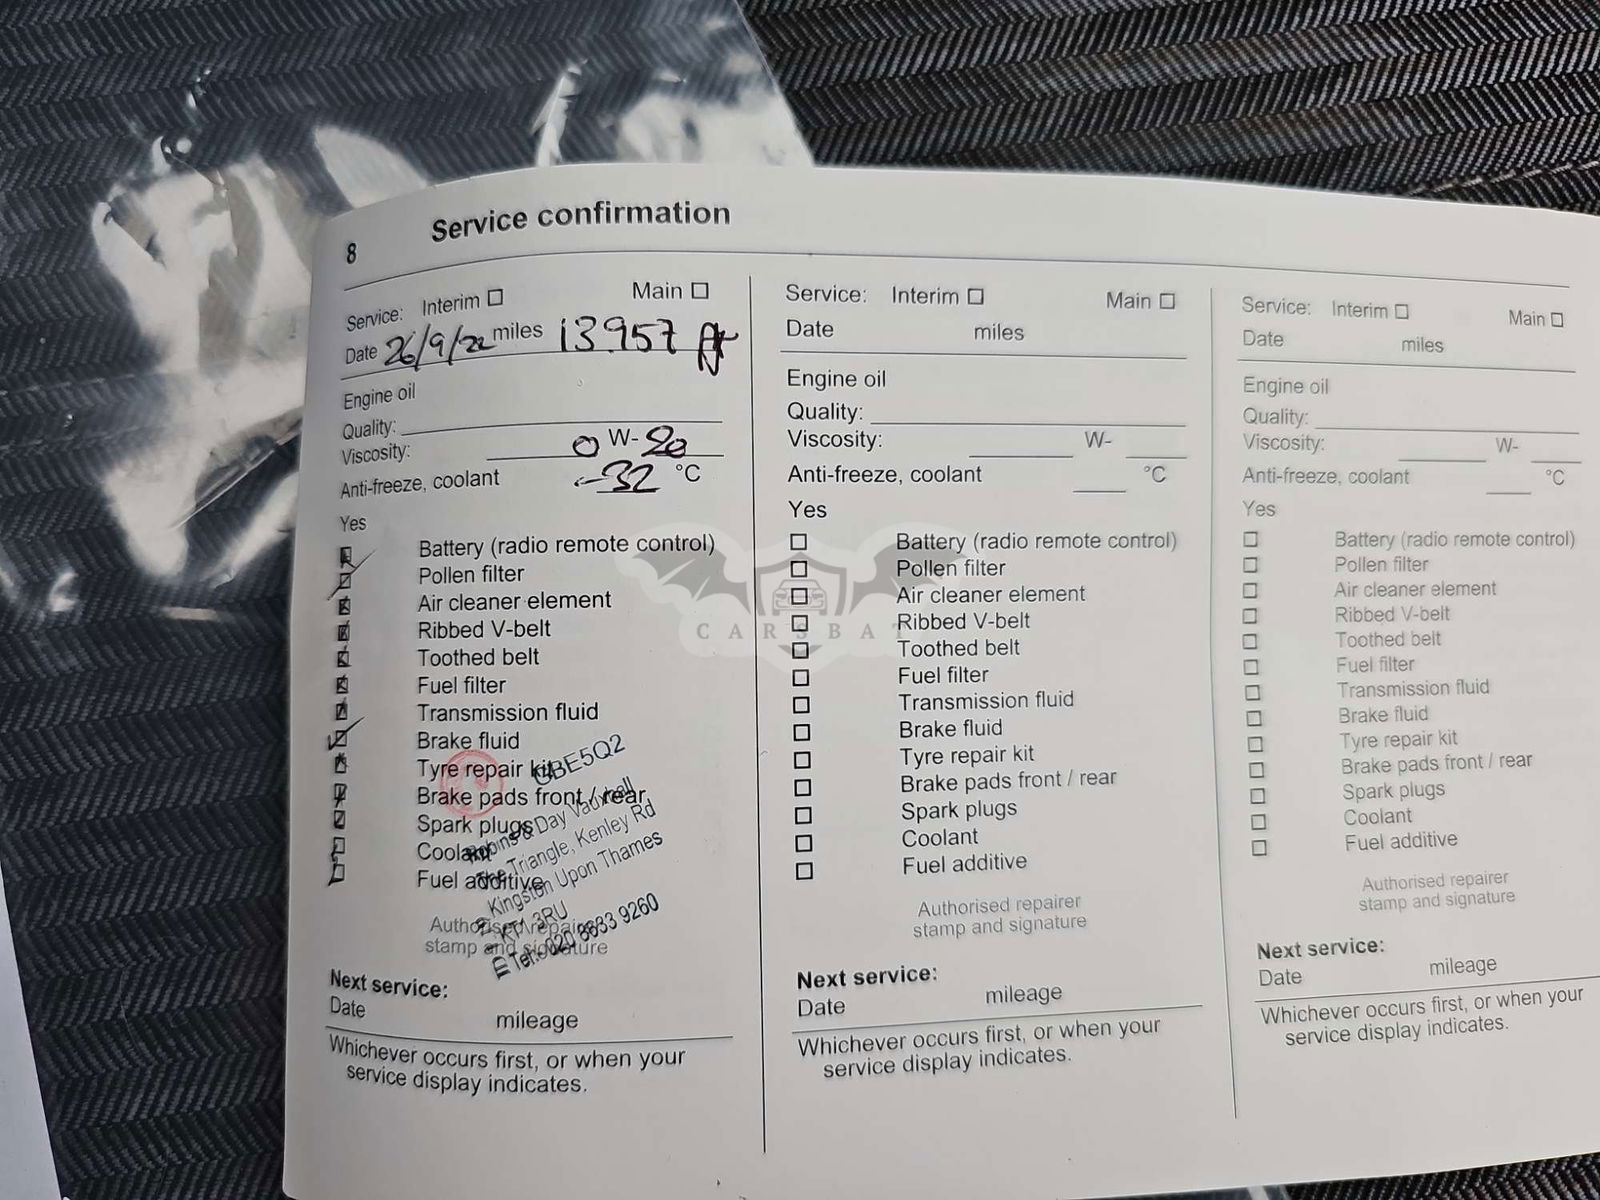 8 Service confirmation
Service: Interim ☐ Main ☐
Date 26/9/22 miles 13957
Engine oil
Quality:
Viscosity: 0 W-20
Anti-freeze, coolant -32 °C
Yes
Battery (radio remote control)
Pollen filter
Air cleaner element
Ribbed V-belt
Toothed belt
Fuel filter
Transmission fluid
Brake fluid
Tyre repair kit
Brake pads front / rear
Spark plugs
Coolant
Fuel additive
Authorised repairer
stamp and signature
BE5Q2
Robins & Day Vauxhall
The Triangle, Kenley Rd
Kingston Upon Thames
KT1 3RU
Tel: 020 8633 9260
Next service:
Date mileage
Whichever occurs first, or when your
service display indicates.
Service: Interim ☐ Main ☐
Date miles
Engine oil
Quality:
Viscosity: W-
Anti-freeze, coolant °C
Yes
☐ Battery (radio remote control)
☐ Pollen filter
☐ Air cleaner element
☐ Ribbed V-belt
☐ Toothed belt
☐ Fuel filter
☐ Transmission fluid
☐ Brake fluid
☐ Tyre repair kit
☐ Brake pads front / rear
☐ Spark plugs
☐ Coolant
☐ Fuel additive
Authorised repairer
stamp and signature
Next service:
Date mileage
Whichever occurs first, or when your
service display indicates.
Service: Interim ☐ Main ☐
Date miles
Engine oil
Quality:
Viscosity: W-
Anti-freeze, coolant °C
Yes
☐ Battery (radio remote control)
☐ Pollen filter
☐ Air cleaner element
☐ Ribbed V-belt
☐ Toothed belt
☐ Fuel filter
☐ Transmission fluid
☐ Brake fluid
☐ Tyre repair kit
☐ Brake pads front / rear
☐ Spark plugs
☐ Coolant
☐ Fuel additive
Authorised repairer
stamp and signature
Next service:
Date mileage
Whichever occurs first, or when your
service display indicates.
CARSBAT